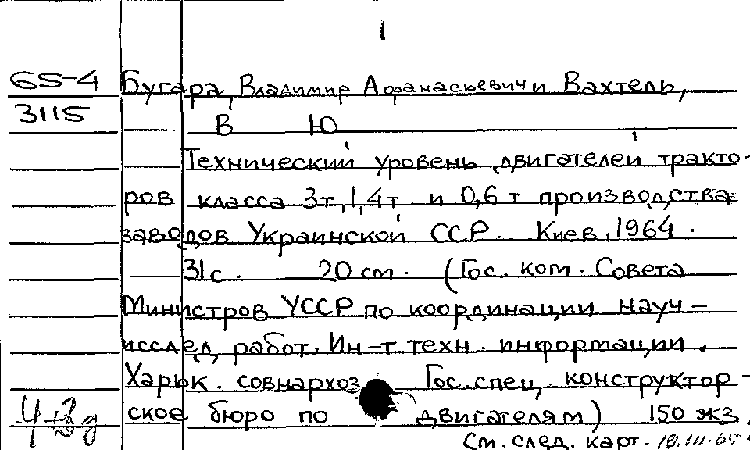 1
65-4 Бугара, Владимир Афанасьевич и Вахтель,
3115 В Ю
Технический уровень двигателей тракто-
ров класса 3т, 1,4т и 0,6т производства
заводов Украинской ССР. Киев, 1964.
31с. 20 см. (Гос. ком. Совета
Министров УССР по координации науч-
исслед. работ. Ин-т техн. информации.
Харьк. совнархоз Гос. спец. конструктор-
ское бюро по двигателям) 150 экз.
См. след. карт.